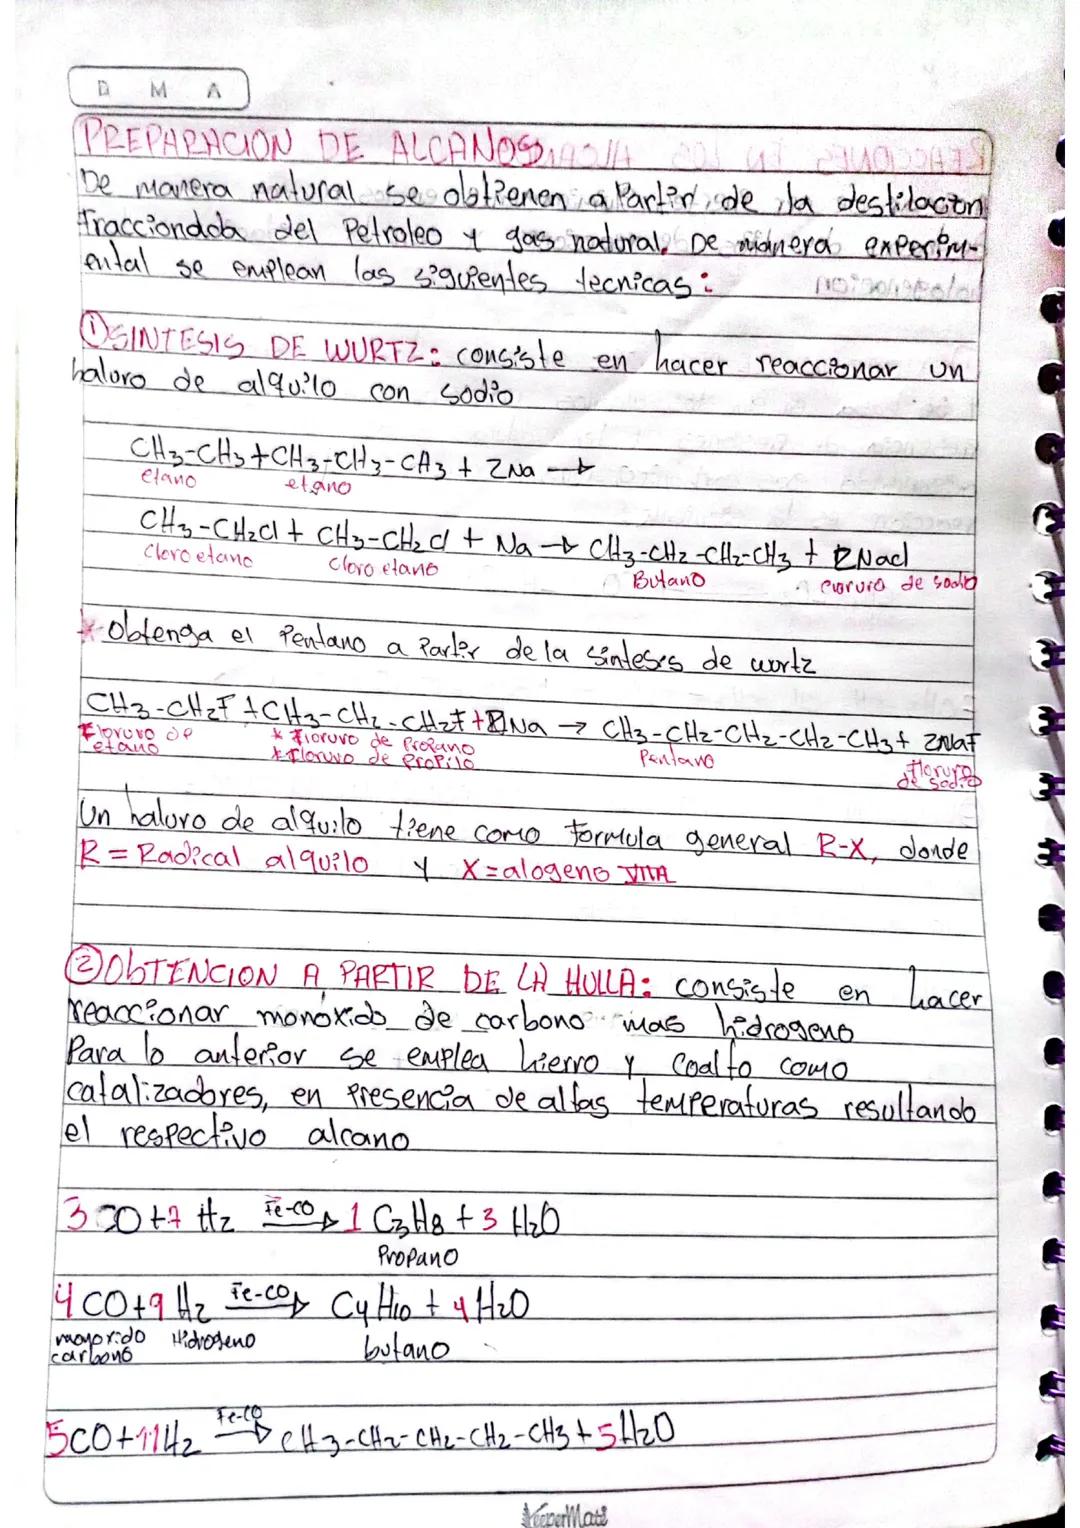 D M A
PREPARACION DE ALCANOS
De manera natural se obtienen a Partir de la destilacion
fraccionada del Petroleo y gas natural. De manera experim-
ental se emplean las siguientes tecnicas:
① SINTESIS DE WURTZ: consiste en hacer reaccionar un
haluro de alquilo con sodio
CH3-CH3+CH3-CH3-CH3 + 2Na →
etano etano
CH3-CH2Cl + CH3-CH2Cl + Na → CH3-CH2-CH2-CH3 + 2Nacl
Cloro etano Cloro etano Butano cloruro de sodio
* Obtenga el Pentano a Partir de la sintesis de wurtz
CH3-CH2F + CH3-CH2-CH2F + 2Na → CH3-CH2-CH2-CH2-CH3 + 2NaF
Floruro de * Floruro de Propano Pentano floruro
etano * Floruro de Propilo de sodio
Un haluro de alquilo tiene como formula general R-X, donde
R = Radical alquilo y X = alogeno VIIA
② ObTENCION A PARTIR DE LA HULLA: consiste en hacer
reaccionar monoxido de carbono mas hidrogeno
Para lo anterior se emplea hierro y Coalto como
catalizadores, en Presencia de altas temperaturas resultando
el respectivo alcano
3 CO + 7 H2 Fe-CO → 1 C3H8 + 3 H2O
Propano
4 CO + 9 H2 Fe-CO → C4H10 + 4 H2O
monoxido Hidrogeno butano
carbono
5CO + 11H2 Fe-CO → CH3-CH2-CH2-CH2-CH3 + 5H2O
KeeperMate